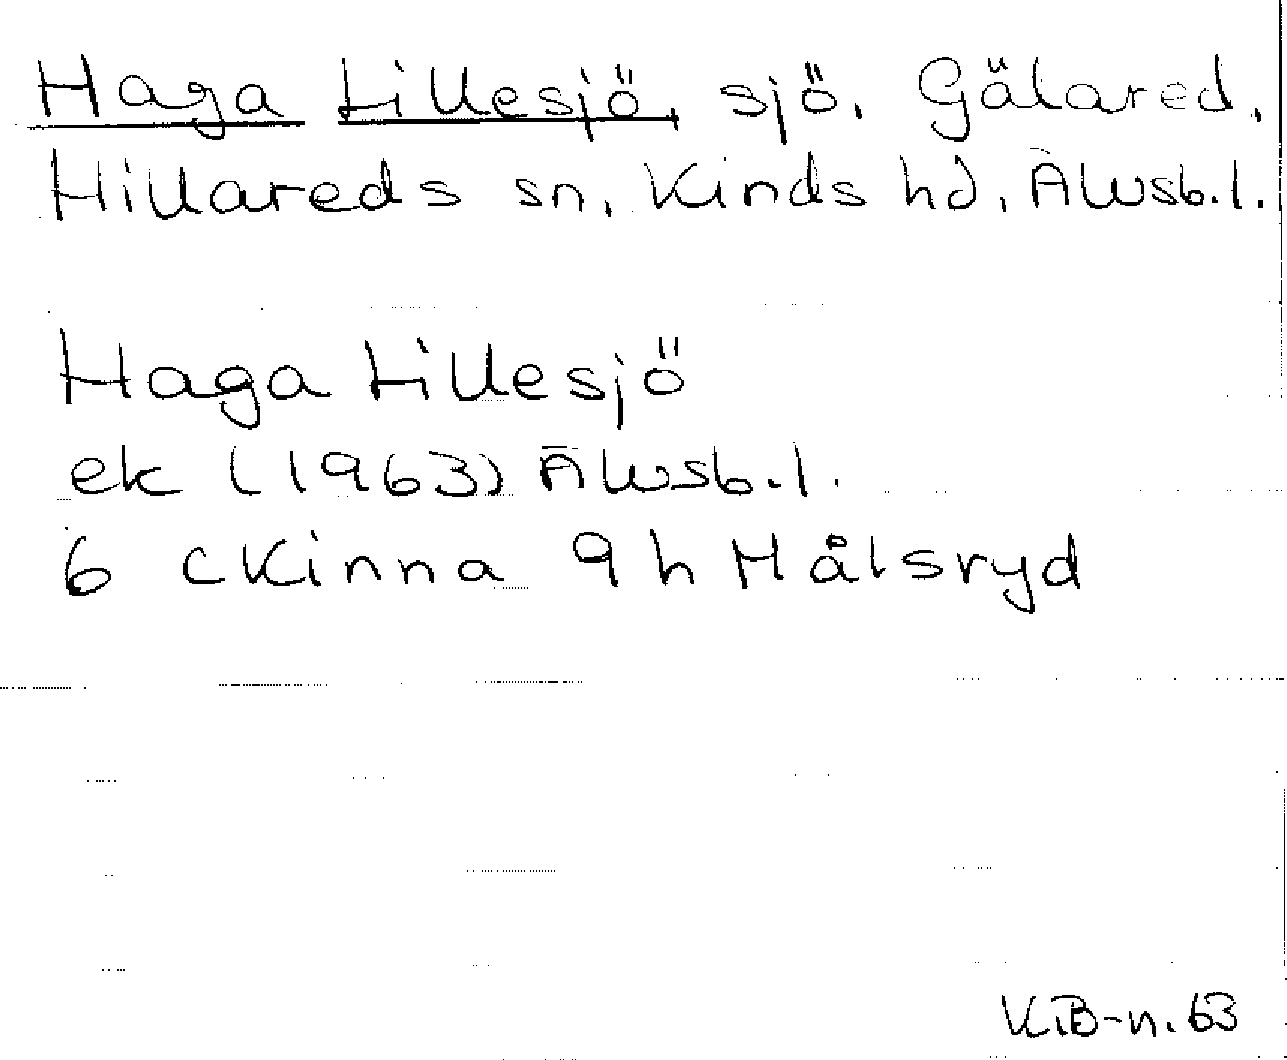 Haga Lillesjö, sjö, Gälared,
Hillareds sn, Kinds hd, Älvsb.l.
Haga Lillesjö
ek (1963) Älvsb.l.
6 C Kinna 9h Målsryd
KiB-n. 63